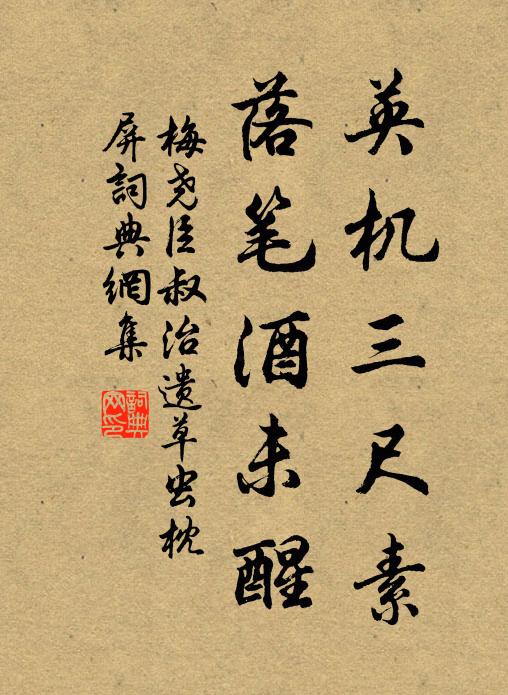 英机三尺素
落笔酒未醒
梅尧臣叔治遗草虫枕
屏詞典網集
詞典
网印